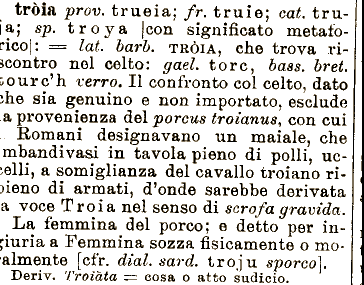 tròia prov. trueia; fr. truie; cat. tru-
ja; sp. troya |con significato metafo-
rico|: = lat. barb. TRÒIA, che trova ri-
scontro nel celto: gael. torc, bass. bret.
tourc'h verro. Il confronto col celto, dato
che sia genuino e non importato, esclude
la provenienza del porcus troianus, con cui
i Romani designavano un maiale, che
imbandivasi in tavola pieno di polli, uc-
celli, a somiglianza del cavallo troiano ri-
pieno di armati, d'onde sarebbe derivata
la voce Troia nel senso di scrofa gravida.
La femmina del porco; e detto per in-
giuria a Femmina sozza fisicamente o mo-
ralmente [cfr. dial. sard. troju sporco].
Deriv. Troiàta = cosa o atto sudicio.